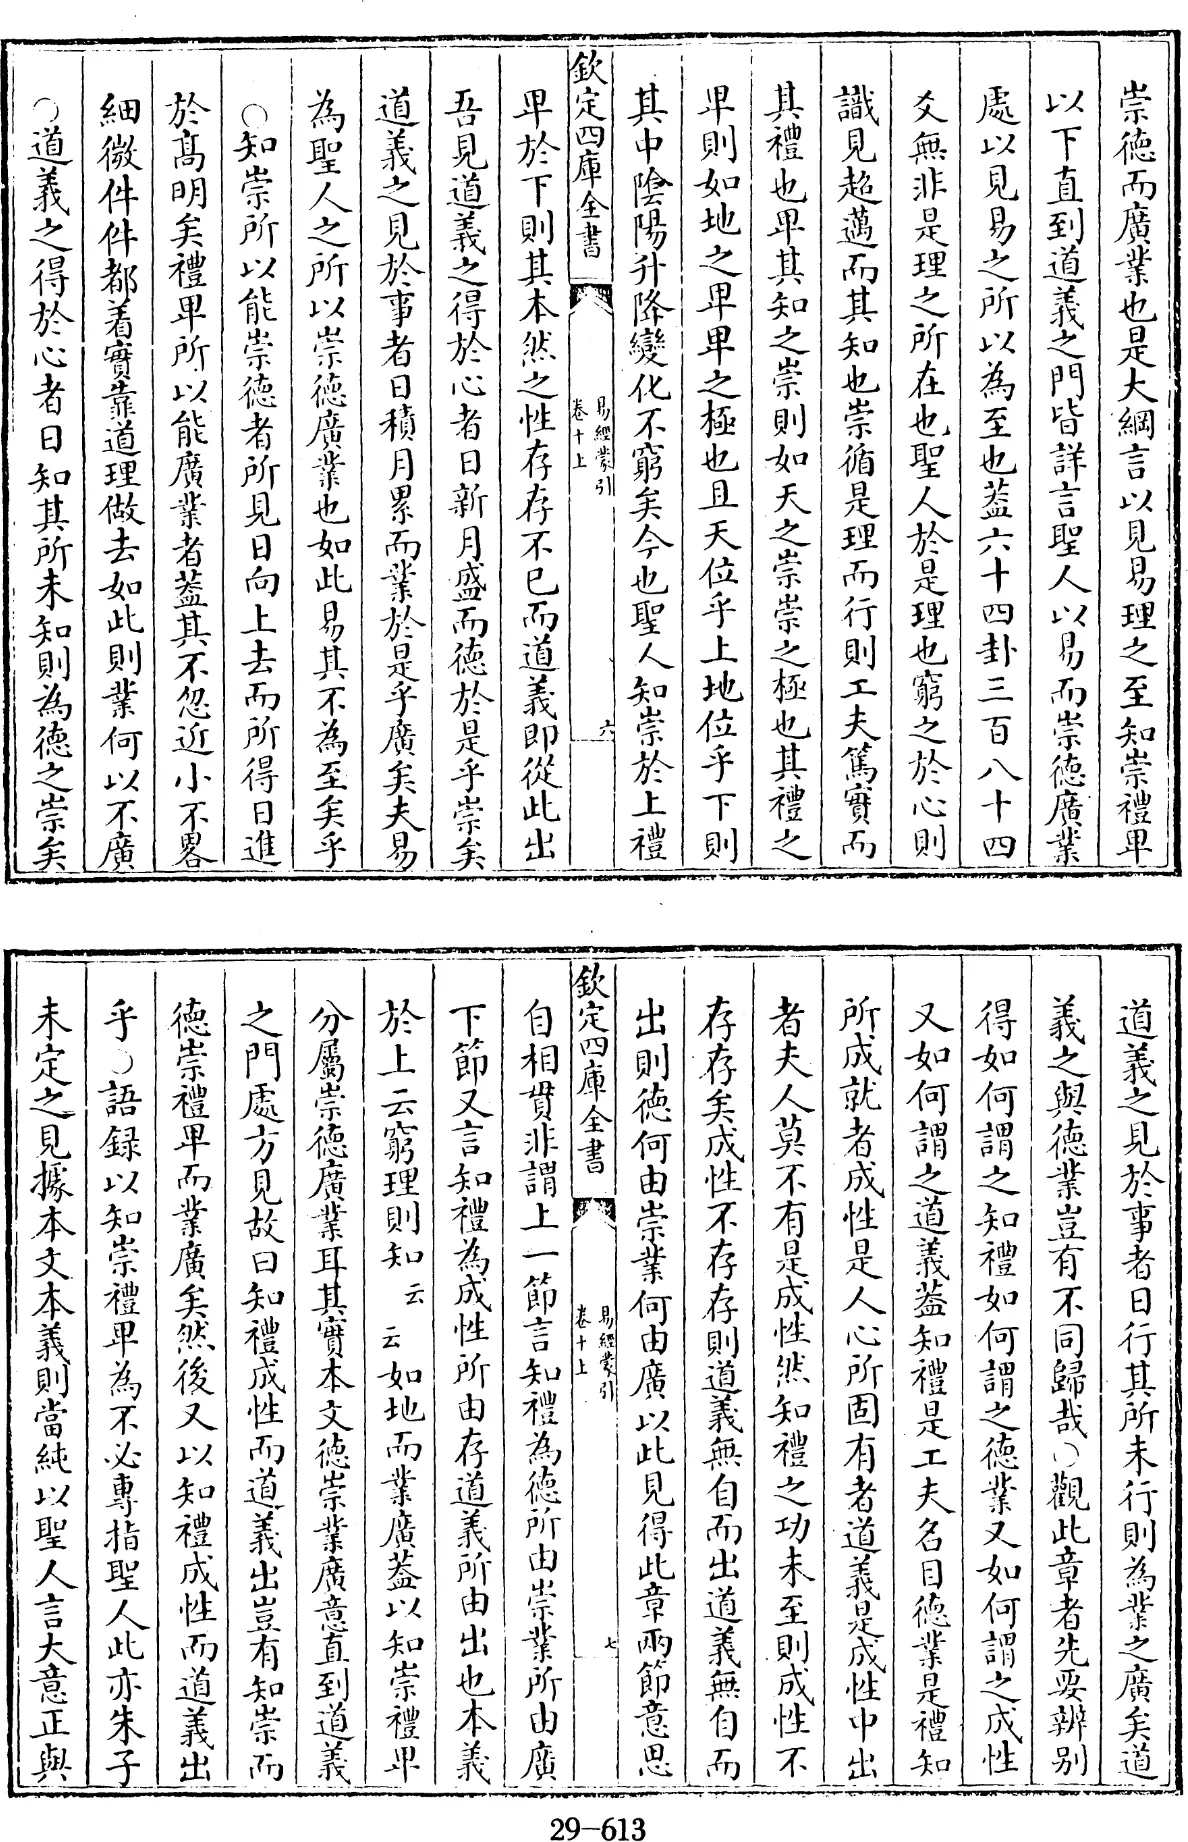 崇徳而廣業也是大綱言以見易理之至知崇禮卑
以下直到道義之門皆詳言聖人以易而崇徳廣業
處以見易之所以為至也葢六十四卦三百八十四
爻無非是理之所在也聖人於是理也窮之於心則
識見超邁而其知也崇循是理而行則工夫篤實而
其禮也卑其知之崇則如天之崇崇之極也其禮之
卑則如地之卑卑之極也且天位乎上地位乎下則
其中陰陽升降變化不窮矣今也聖人知崇於上禮
欽定四庫全書
易經蒙引
卷十上
六
卑於下則其本然之性存存不已而道義即從此出
吾見道義之得於心者日新月盛而徳於是乎崇矣
道義之見於事者日積月累而業於是乎廣矣夫易
為聖人之所以崇徳廣業也如此易其不為至矣乎
○知崇所以能崇徳者所見日向上去而所得日進
於髙明矣禮卑所以能廣業者葢其不忽近小不畧
細微件件都着實靠道理做去如此則業何以不廣
○道義之得於心者日知其所未知則為徳之崇矣
道義之見於事者日行其所未行則為業之廣矣道
義之與徳業豈有不同歸哉○觀此章者先要辨别
得如何謂之知禮如何謂之徳業又如何謂之成性
又如何謂之道義葢知禮是工夫名目徳業是禮知
所成就者成性是人心所固有者道義是成性中出
者夫人莫不有是成性然知禮之功未至則成性不
存存矣成性不存存則道義無自而出道義無自而
出則徳何由崇業何由廣以此見得此章兩節意思
欽定四庫全書
易經蒙引
卷十上
七
自相貫非謂上一節言知禮為徳所由崇業所由廣
下節又言知禮為成性所由存道義所由出也本義
於上云窮理則知云云如地而業廣葢以知崇禮卑
分屬崇徳廣業耳其實本文徳崇業廣意直到道義
之門處方見故曰知禮成性而道義出豈有知崇而
徳崇禮卑而業廣矣然後又以知禮成性而道義出
乎○語録以知崇禮卑為不必專指聖人此亦朱子
未定之見據本文本義則當純以聖人言大意正與
29-613